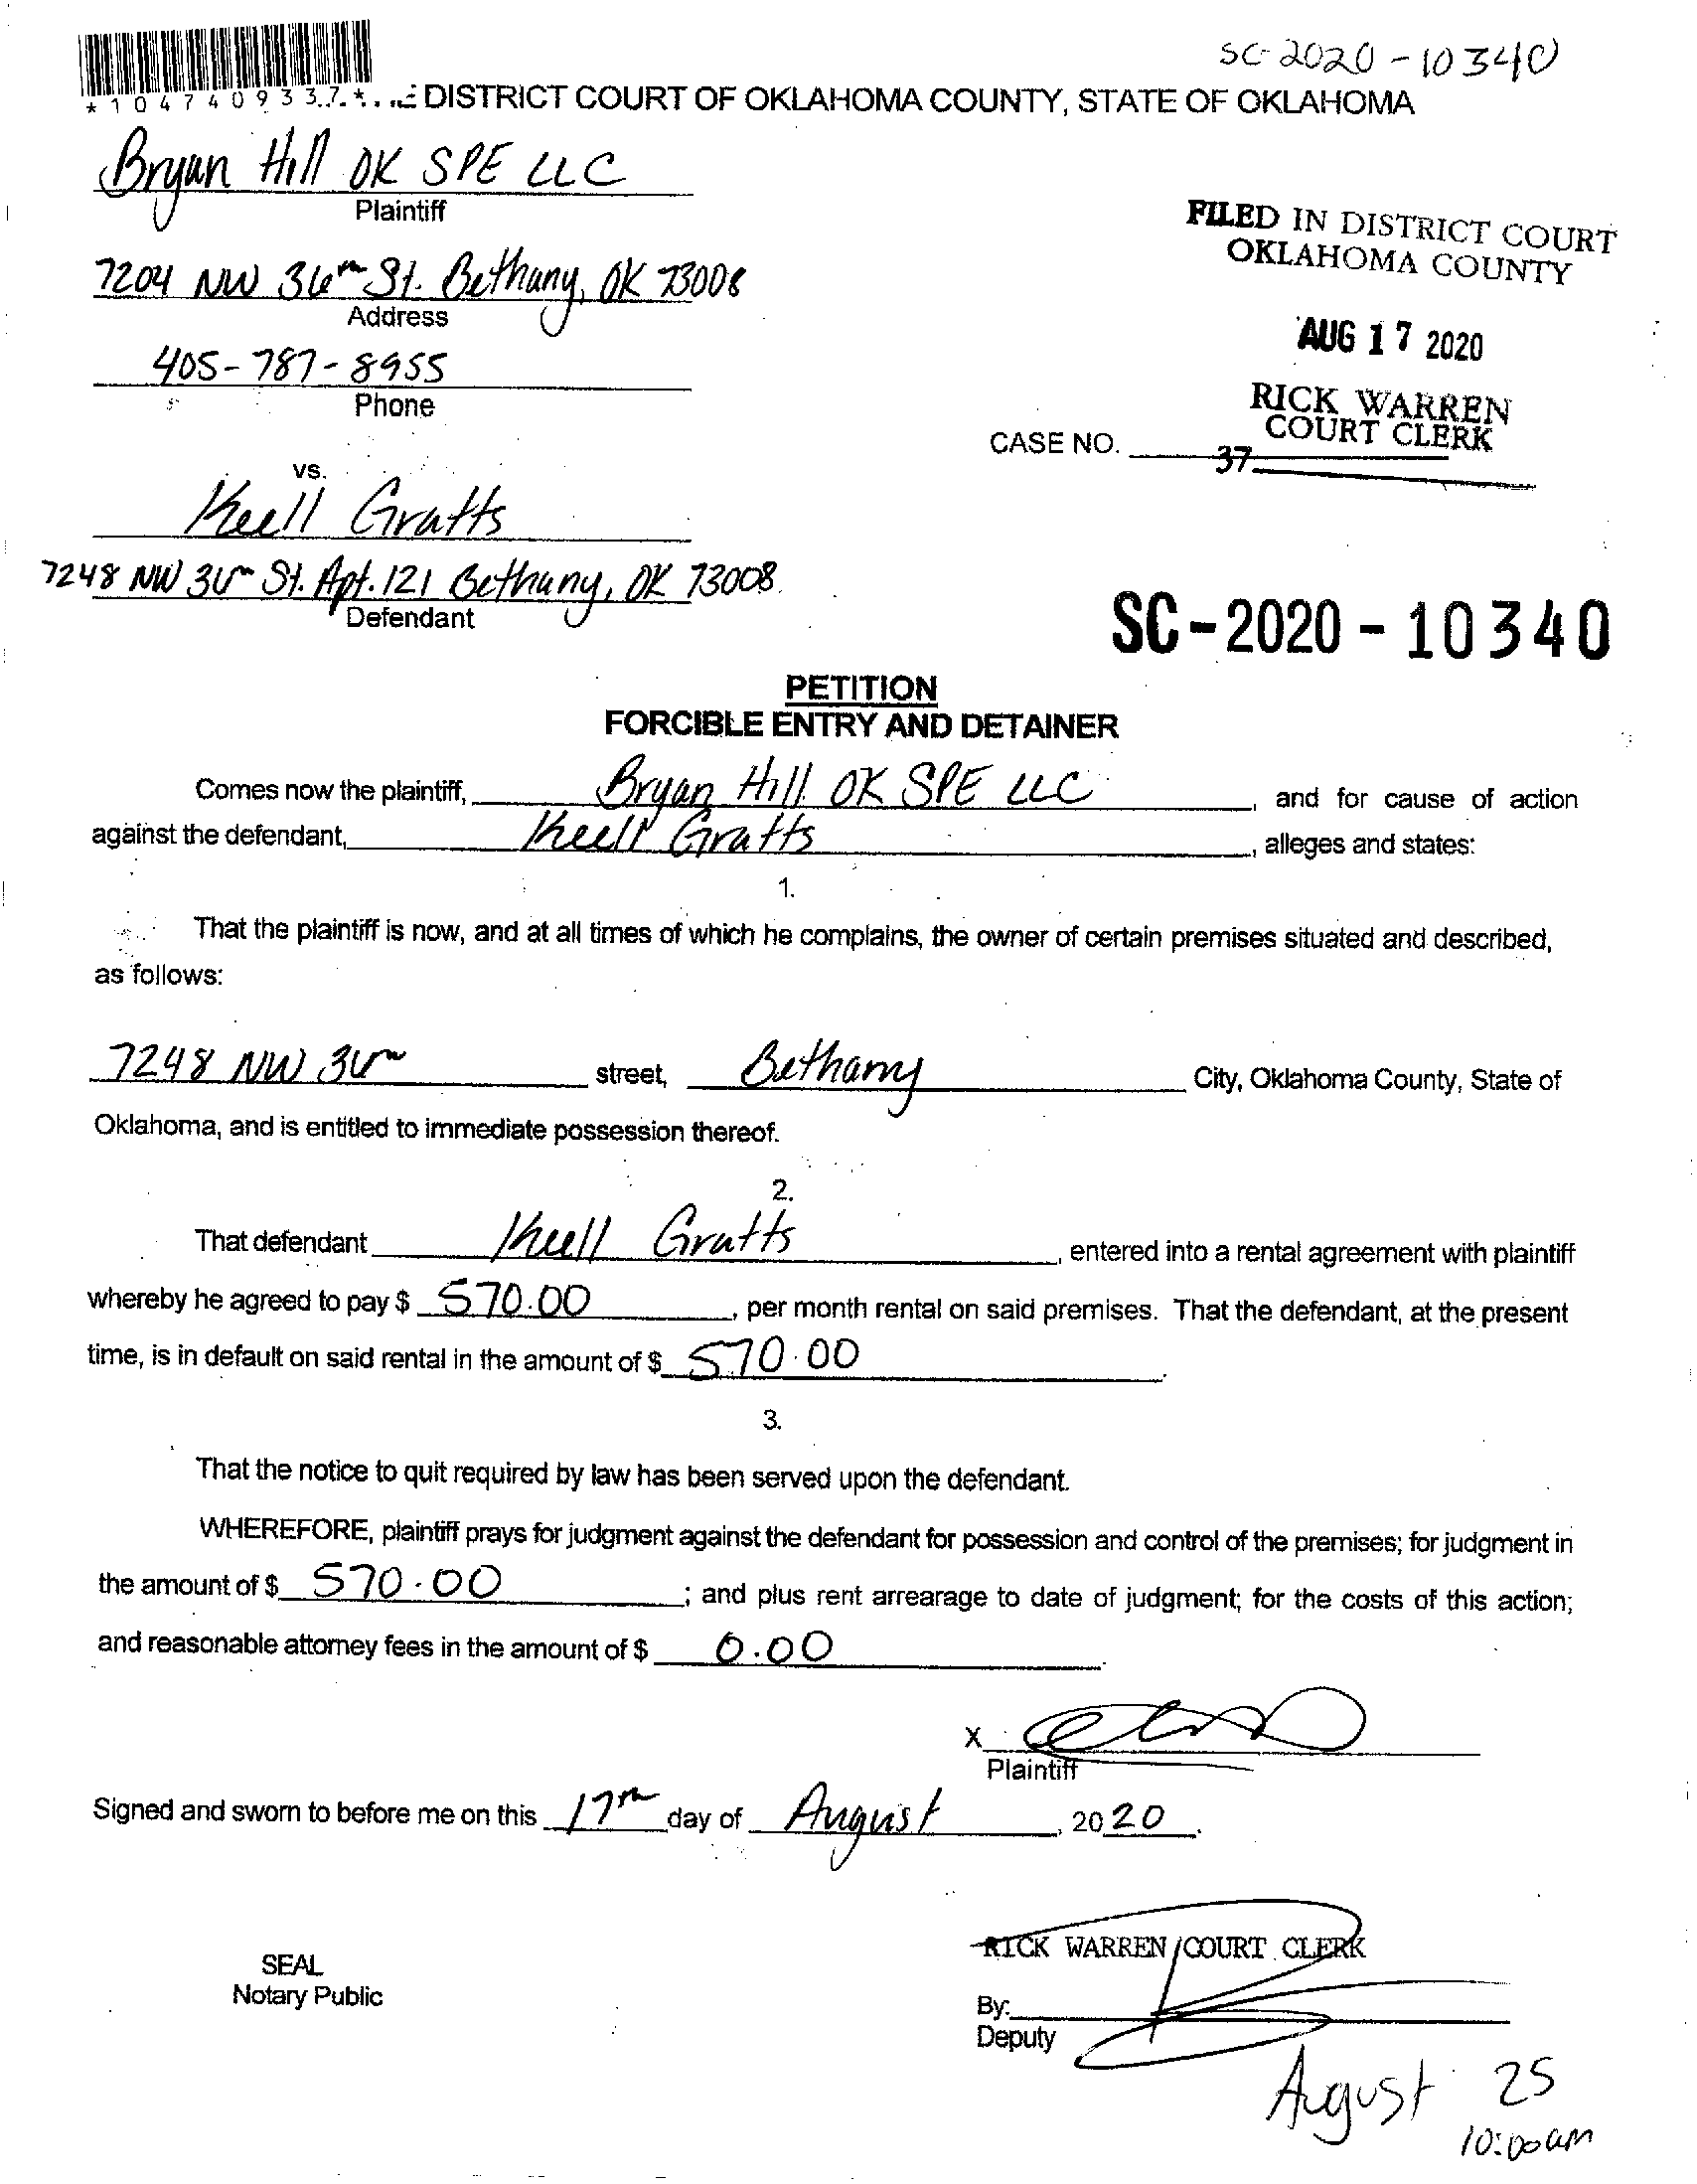 SC-2020-10340
*1047409337*
DISTRICT COURT OF OKLAHOMA COUNTY, STATE OF OKLAHOMA
Bryan Hill OK SPE LLC
Plaintiff
7204 NW 36th St. Bethany, OK 73008
Address
405-787-8955
Phone
FILED IN DISTRICT COURT
OKLAHOMA COUNTY
AUG 17 2020
RICK WARREN
COURT CLERK
CASE NO.
37
vs.
Keell Gratts
7248 NW 36th St. Apt. 121 Bethany, OK 73008
Defendant
SC-2020-10340
PETITION
FORCIBLE ENTRY AND DETAINER
Comes now the plaintiff, Bryan Hill OK SPE LLC, and for cause of action
against the defendant, Keell Gratts, alleges and states:
1.
That the plaintiff is now, and at all times of which he complains, the owner of certain premises situated and described,
as follows:
7248 NW 36th street, Bethany City, Oklahoma County, State of
Oklahoma, and is entitled to immediate possession thereof.
2.
That defendant Keell Gratts, entered into a rental agreement with plaintiff
whereby he agreed to pay $ 570.00, per month rental on said premises. That the defendant, at the present
time, is in default on said rental in the amount of $ 570.00.
3.
That the notice to quit required by law has been served upon the defendant.
WHEREFORE, plaintiff prays for judgment against the defendant for possession and control of the premises; for judgment in
the amount of $ 570.00; and plus rent arrearage to date of judgment; for the costs of this action;
and reasonable attorney fees in the amount of $ 0.00.
X
Plaintiff
Signed and sworn to before me on this 17th day of August, 2020.
RICK WARREN COURT CLERK
SEAL
Notary Public
By:
Deputy
August 25
10:00am